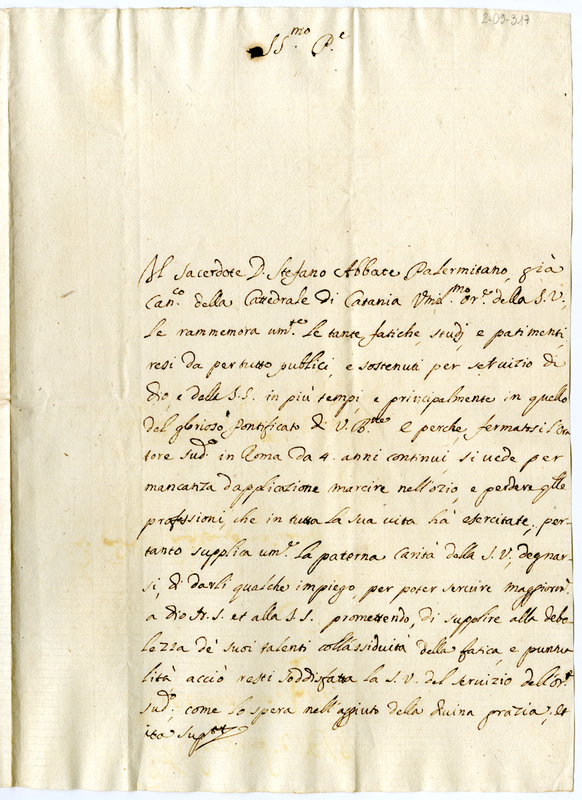 2-09-317
SS.mo P.e
Il Sacerdote D. Stefano Abbate Palermitano, già
Can.co della Cattedrale di Catania Umil.mo Or.e della S.V.,
le rammemora um.te le tante fatiche studj, e patimenti,
resi da per tutto publici, e sostenuti per servizio di
Dio, e della S.S. in più tempi, e principalmente in quello
del glorioso Pontificato di V. B.ne E perche fermatosi l'Ora
tore sud.o in Roma da 4. anni continui, si vede per
mancanza d'applicazione marcire nell'ozio, e perdere q.lle
professioni, che in tutta la sua vita hà esercitate, per-
tanto supplica um.e la paterna Carità della S.V., degnar-
si, di darli qualche impiego, per poter servire maggiorm.
a Dio N.S. et alla S.S. promettendo, di supplire alla debo
lezza de' suoi talenti coll'assiduità della fatica, e puntua
lità acciò resti soddisfatta la S.V. del servizio dell'Or.e
sud.o, come lo spera nell'aggiuto della divina grazia, et
ita